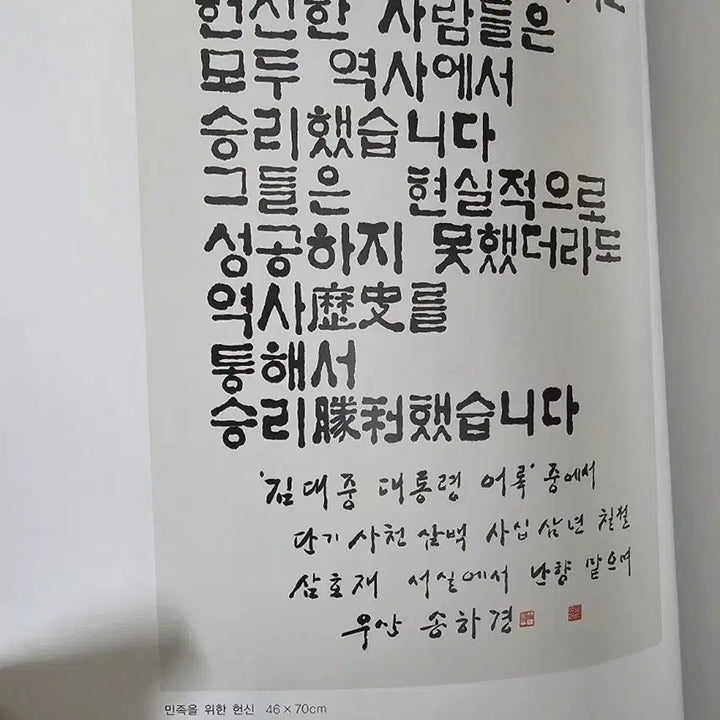 헌신한 사람들은
모두 역사에서
승리했습니다
그들은 현실적으로
성공하지 못했더라도
역사歷史를
통해서
승리勝利했습니다
'김대중 대통령 어록' 중에서
단기 사천 삼백 사십 삼년 칠월
삼호재 서실에서 난향 맡으며
우산 송하경
민족을 위한 헌신 46×70cm